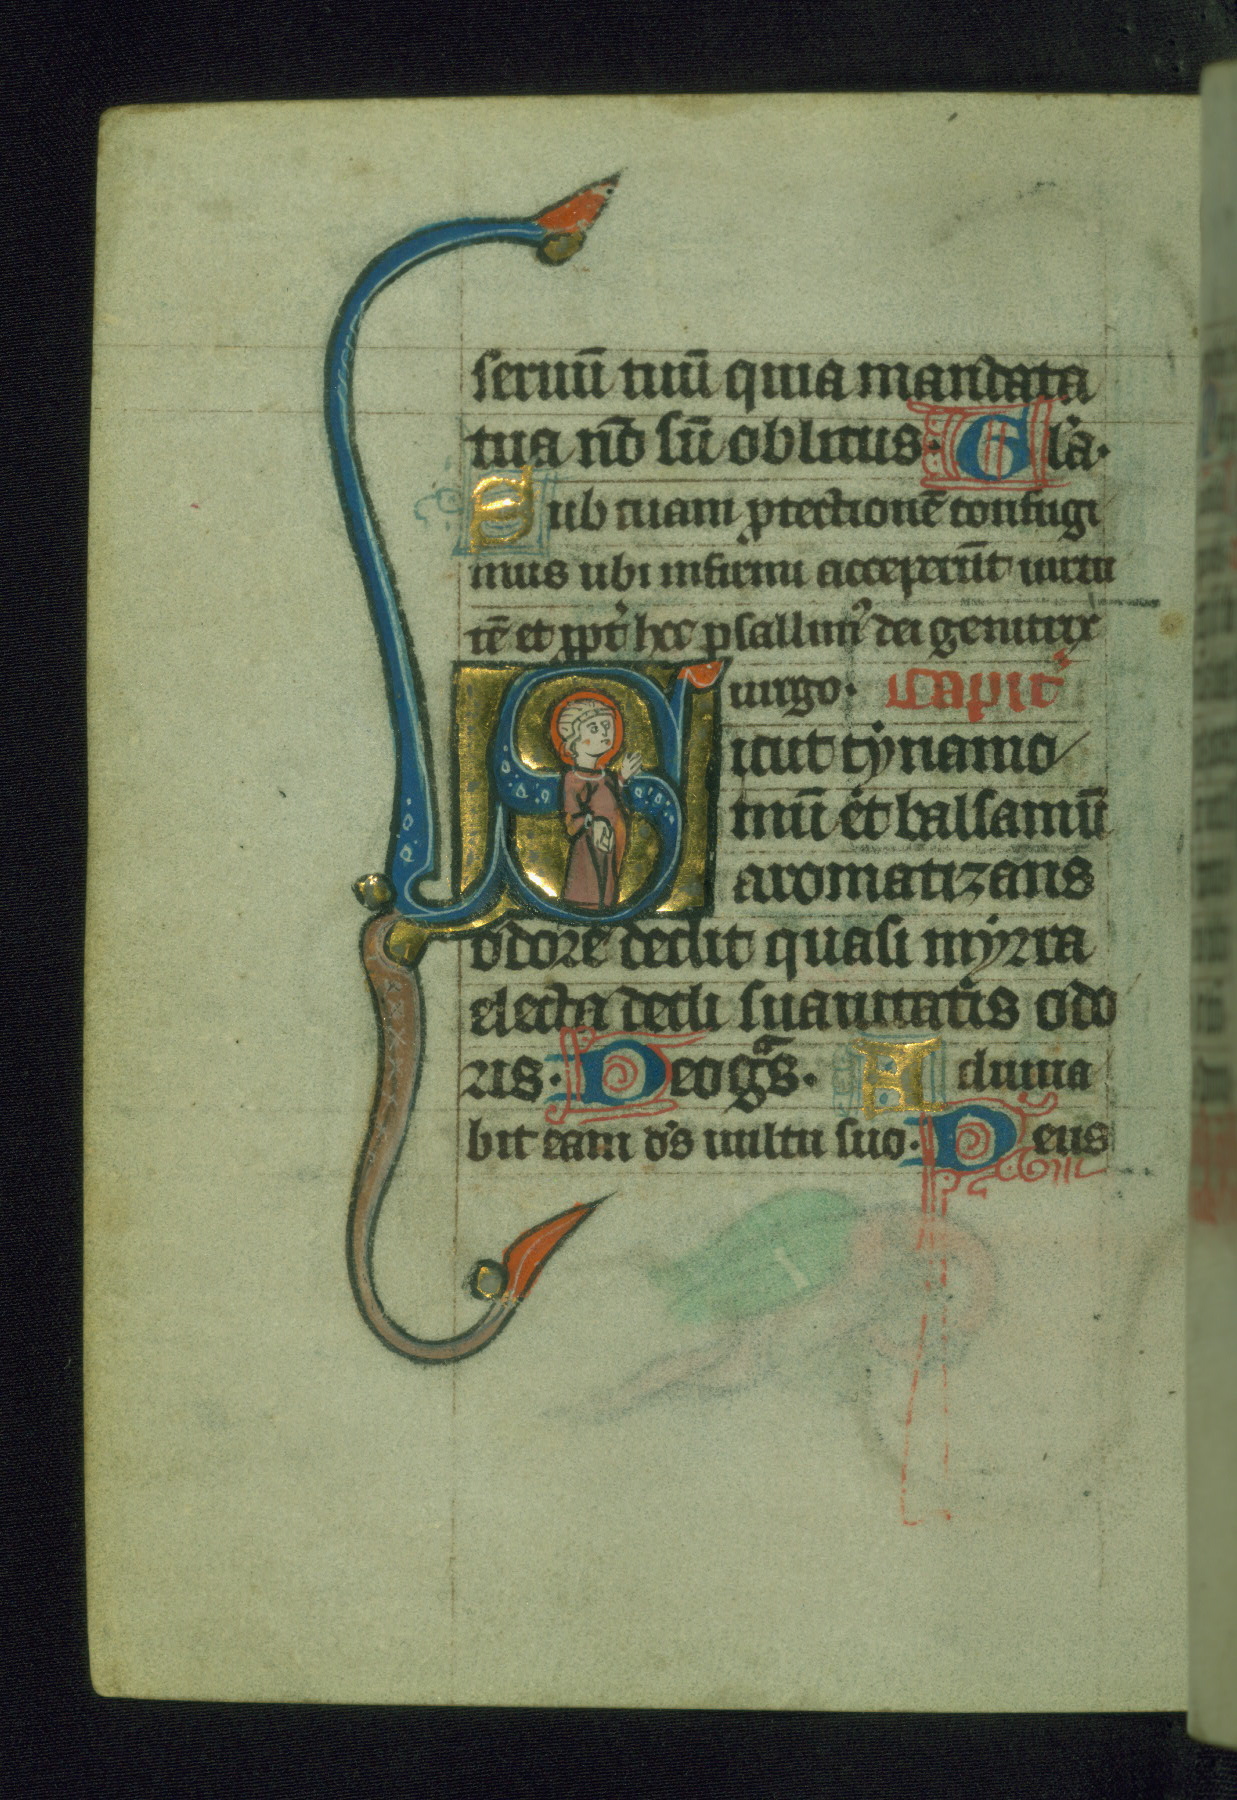 seruū tuū quia mandata
tua nō sū oblitus· Gl'a·
Sub tuam ꝓtectionē confugi
mus ubi infirmi acceperūt uirtu
tē et ꝓpt' hoc psallim' dei genitrix
uirgo· Capit'
Sicut cẏnamo
mū et balsamū
aromatizans
odore dedit quasi mẏrra
electa dedi suauitatis odo
ris· Deo gr̄as· Adiuua
bit eam d's uultu suo· Deus